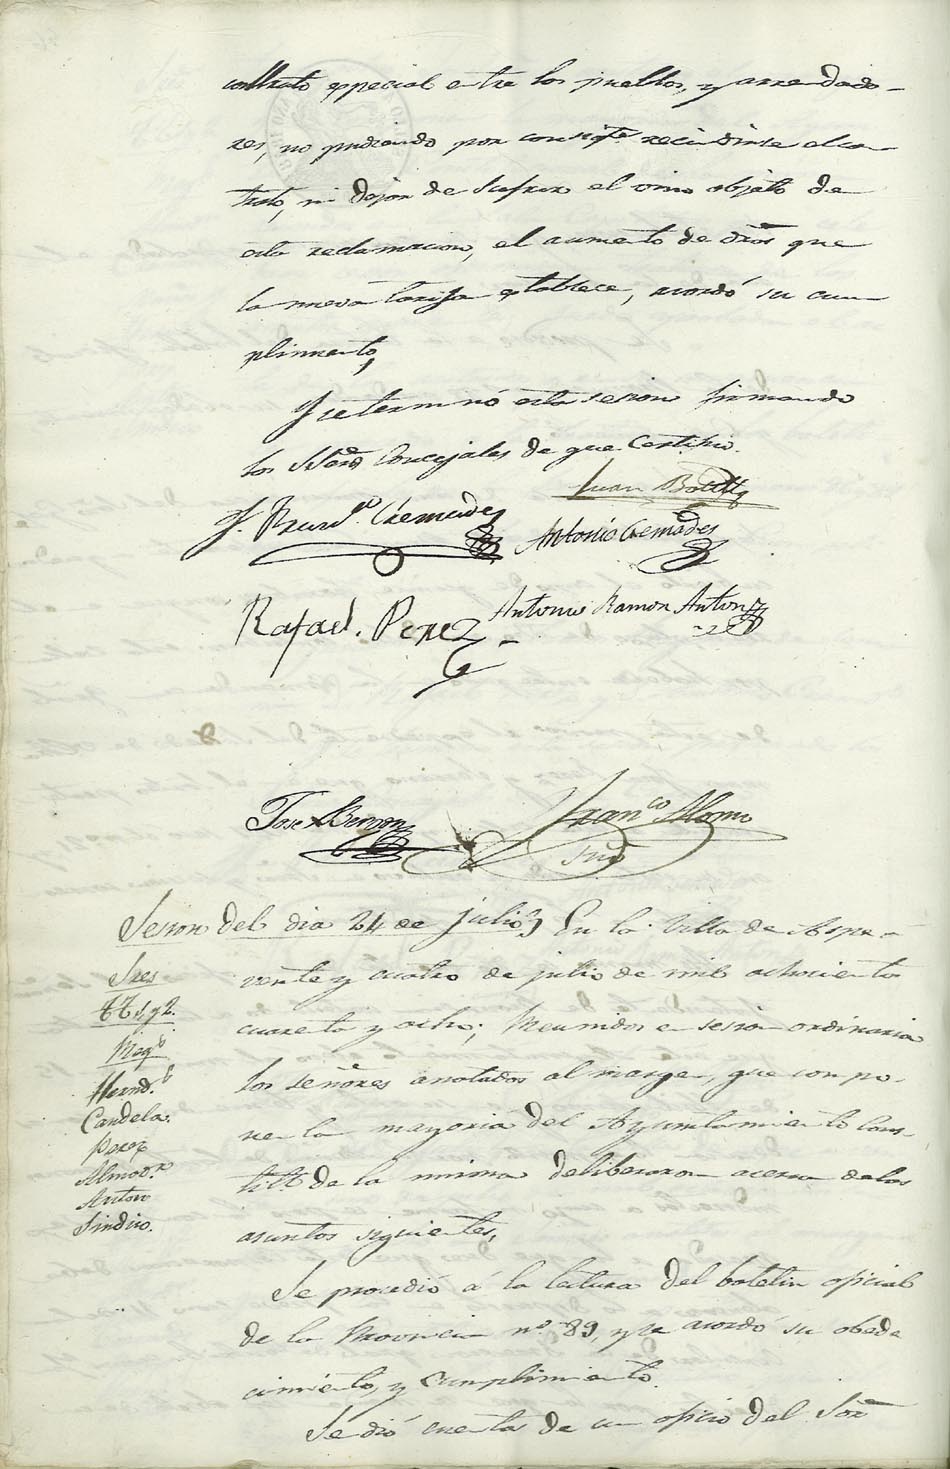 contrato especial entre los pueblos, y arrendado-
res, no pudiendo por consigte recindirse el con-
trato, ni dejar de sufrir el vino objeto de
esta reclamacion, el aumento de dros que
la nueva tarifa establece, acordó su cum-
plimiento,
Y se terminó esta sesion firmando
los Sres Concejales de que Certifico.
Juan Botella
Cremades
Antonio Cremades
Rafael Perez
Antonio Ramon Anton
Jose
Franco Alonso
Srio
Sesion del dia 24 de julio, En la Villa de Aspe a
veinte y cuatro de julio de mil ochocientos
cuarenta y ocho; Reunidos en sesion ordinaria
los señores anotados al margen, que compo-
nen la mayoria del Ayuntamiento Cons-
titl de la misma deliberaron acerca de los
asuntos siguientes,
Sres
TT 1, y 2.
Hernd.
Candela.
Perez
Almodr
Anton
Sindico.
Se procedió á la lectura del boletin oficial
de la Provincia nº 89, y se acordó su obede
cimiento, y cumplimiento.
Se dió cuenta de un oficio del Sor